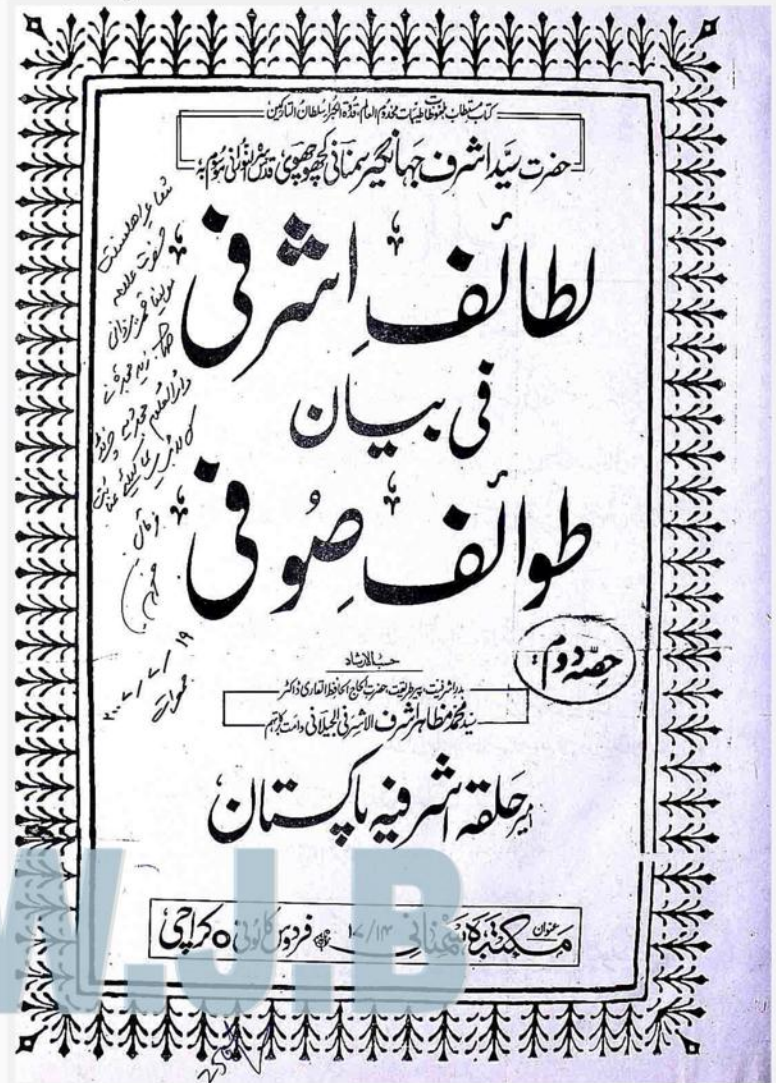 کتاب مستطاب ملفوظات طیبات مخدوم العالم، قدوۃ الکبرا، سلطان التارکین
حضرت سید اشرف جہانگیر سمنانی کچھوچھوی قدس سرہ النورانی موسوم بہ
لطائفِ اشرفی
فی بیان
طوائفِ صُوفی
حِصّہ دوم:
حسب الارشاد
بدر اشرفیت، پیر طریقت، حضرت الحاج الحافظ القاری ڈاکٹر
سید محمد مظاہر اشرف الاشرفی الجیلانی دامت برکاتہم
امیر حلقہ اشرفیہ پاکستان
عنوان مکتبہ سمنانی ۱۷/۱۴ فردوس کالونی ○ کراچی
حضرت علامہ
دار العلوم
۱۹
جمعرات
W.J.B